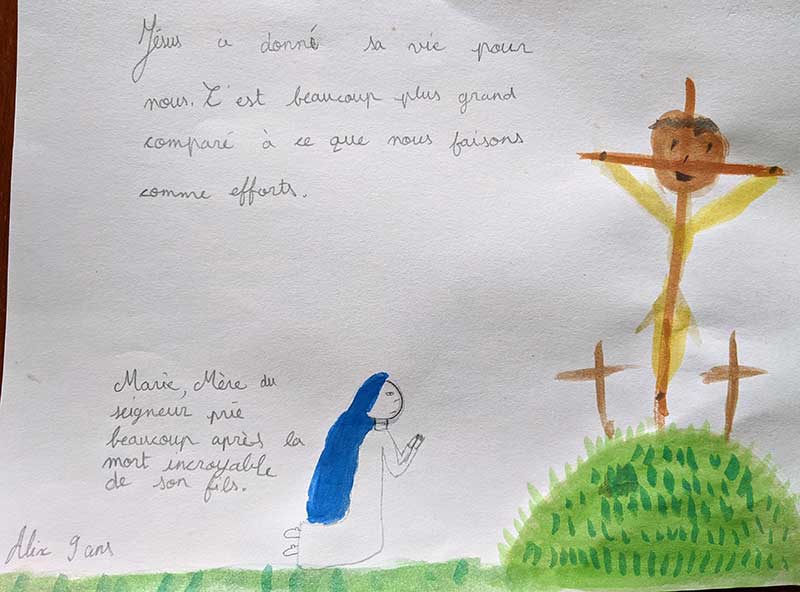 Jésus a donné sa vie pour
nous. C'est beaucoup plus grand
comparé à ce que nous faisons
comme efforts.
Marie, Mère du
seigneur prie
beaucoup après la
mort incroyable
de son fils.
Alix 9 ans